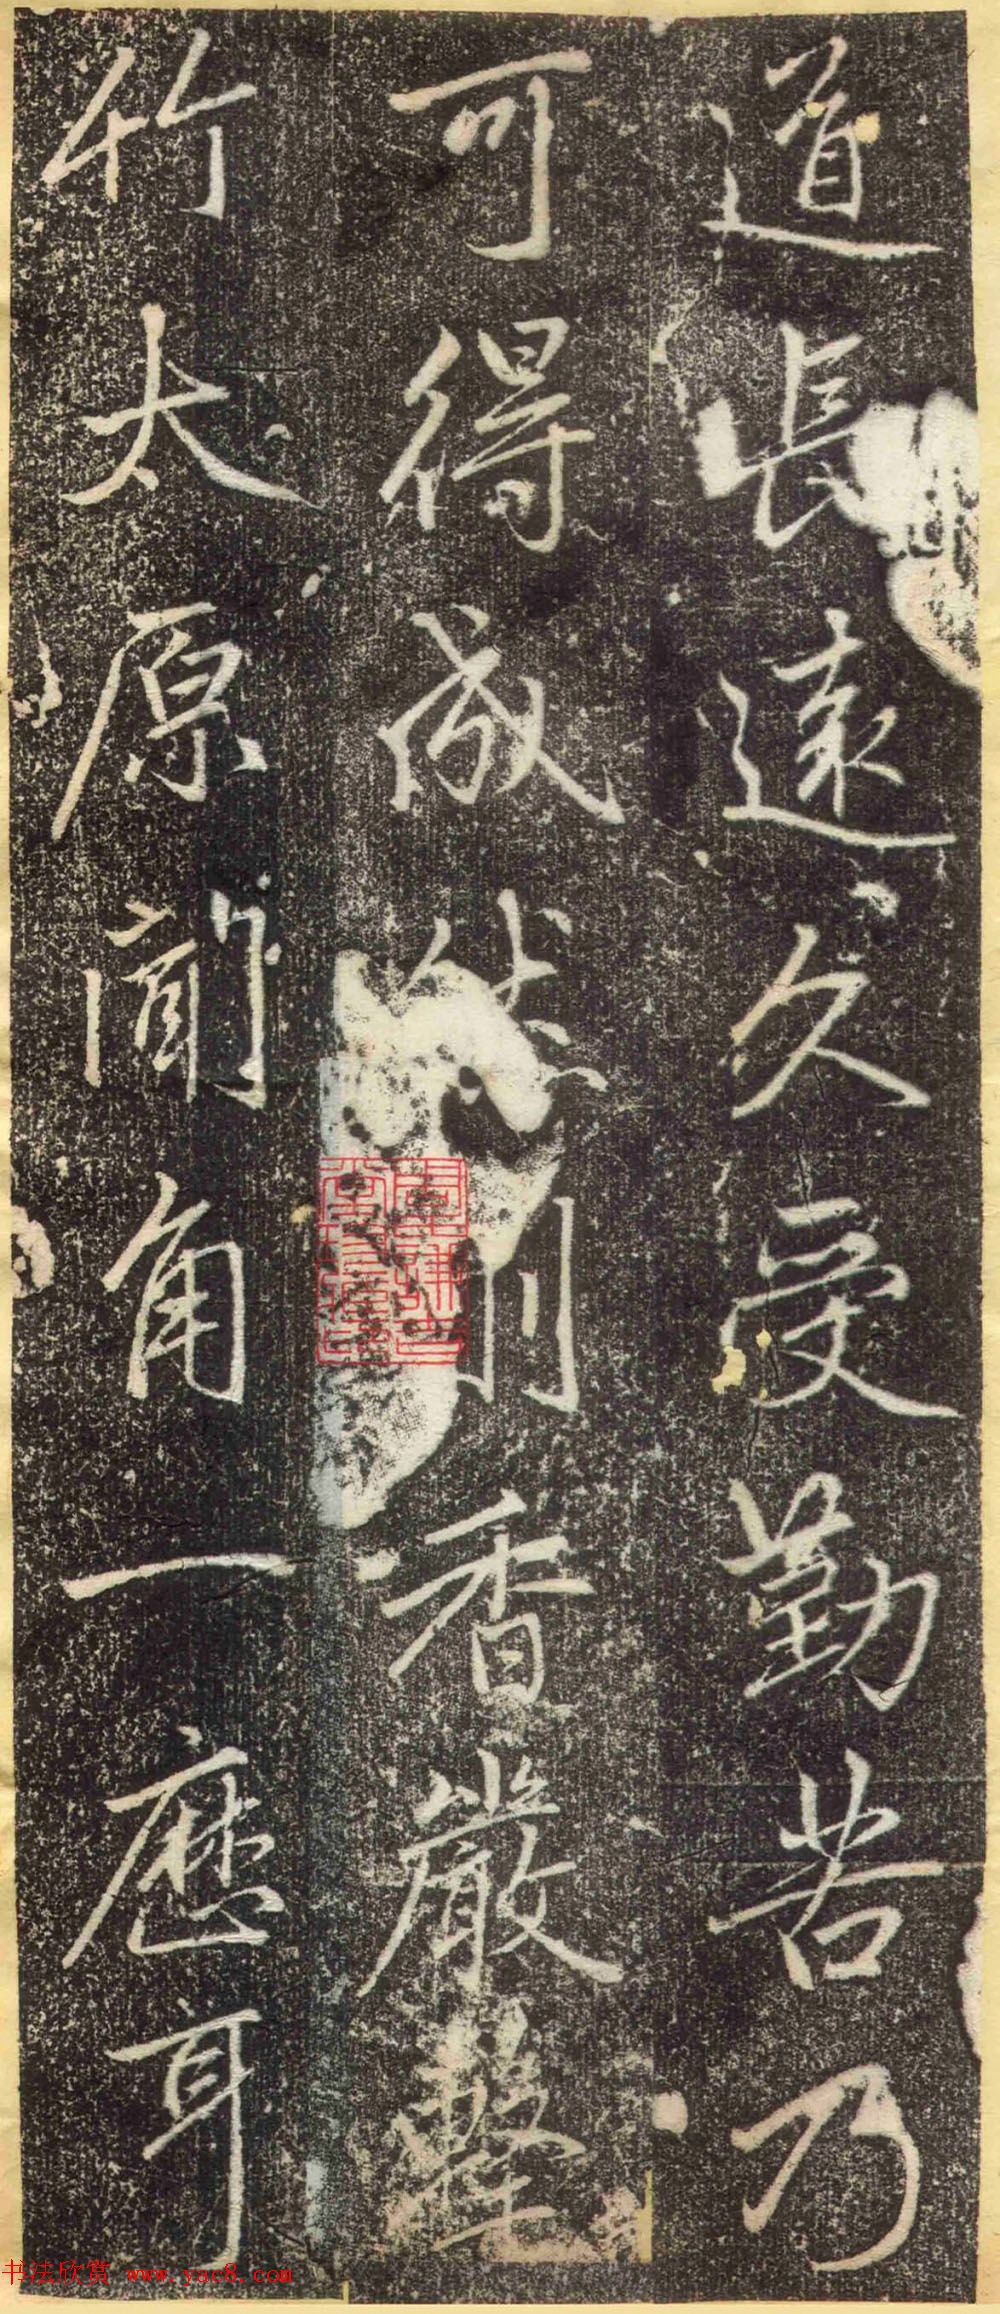 道長遠久受勤苦乃
可得成然則香嚴擊
竹太原聞角一應耳
书法欣赏 www.yac8.com